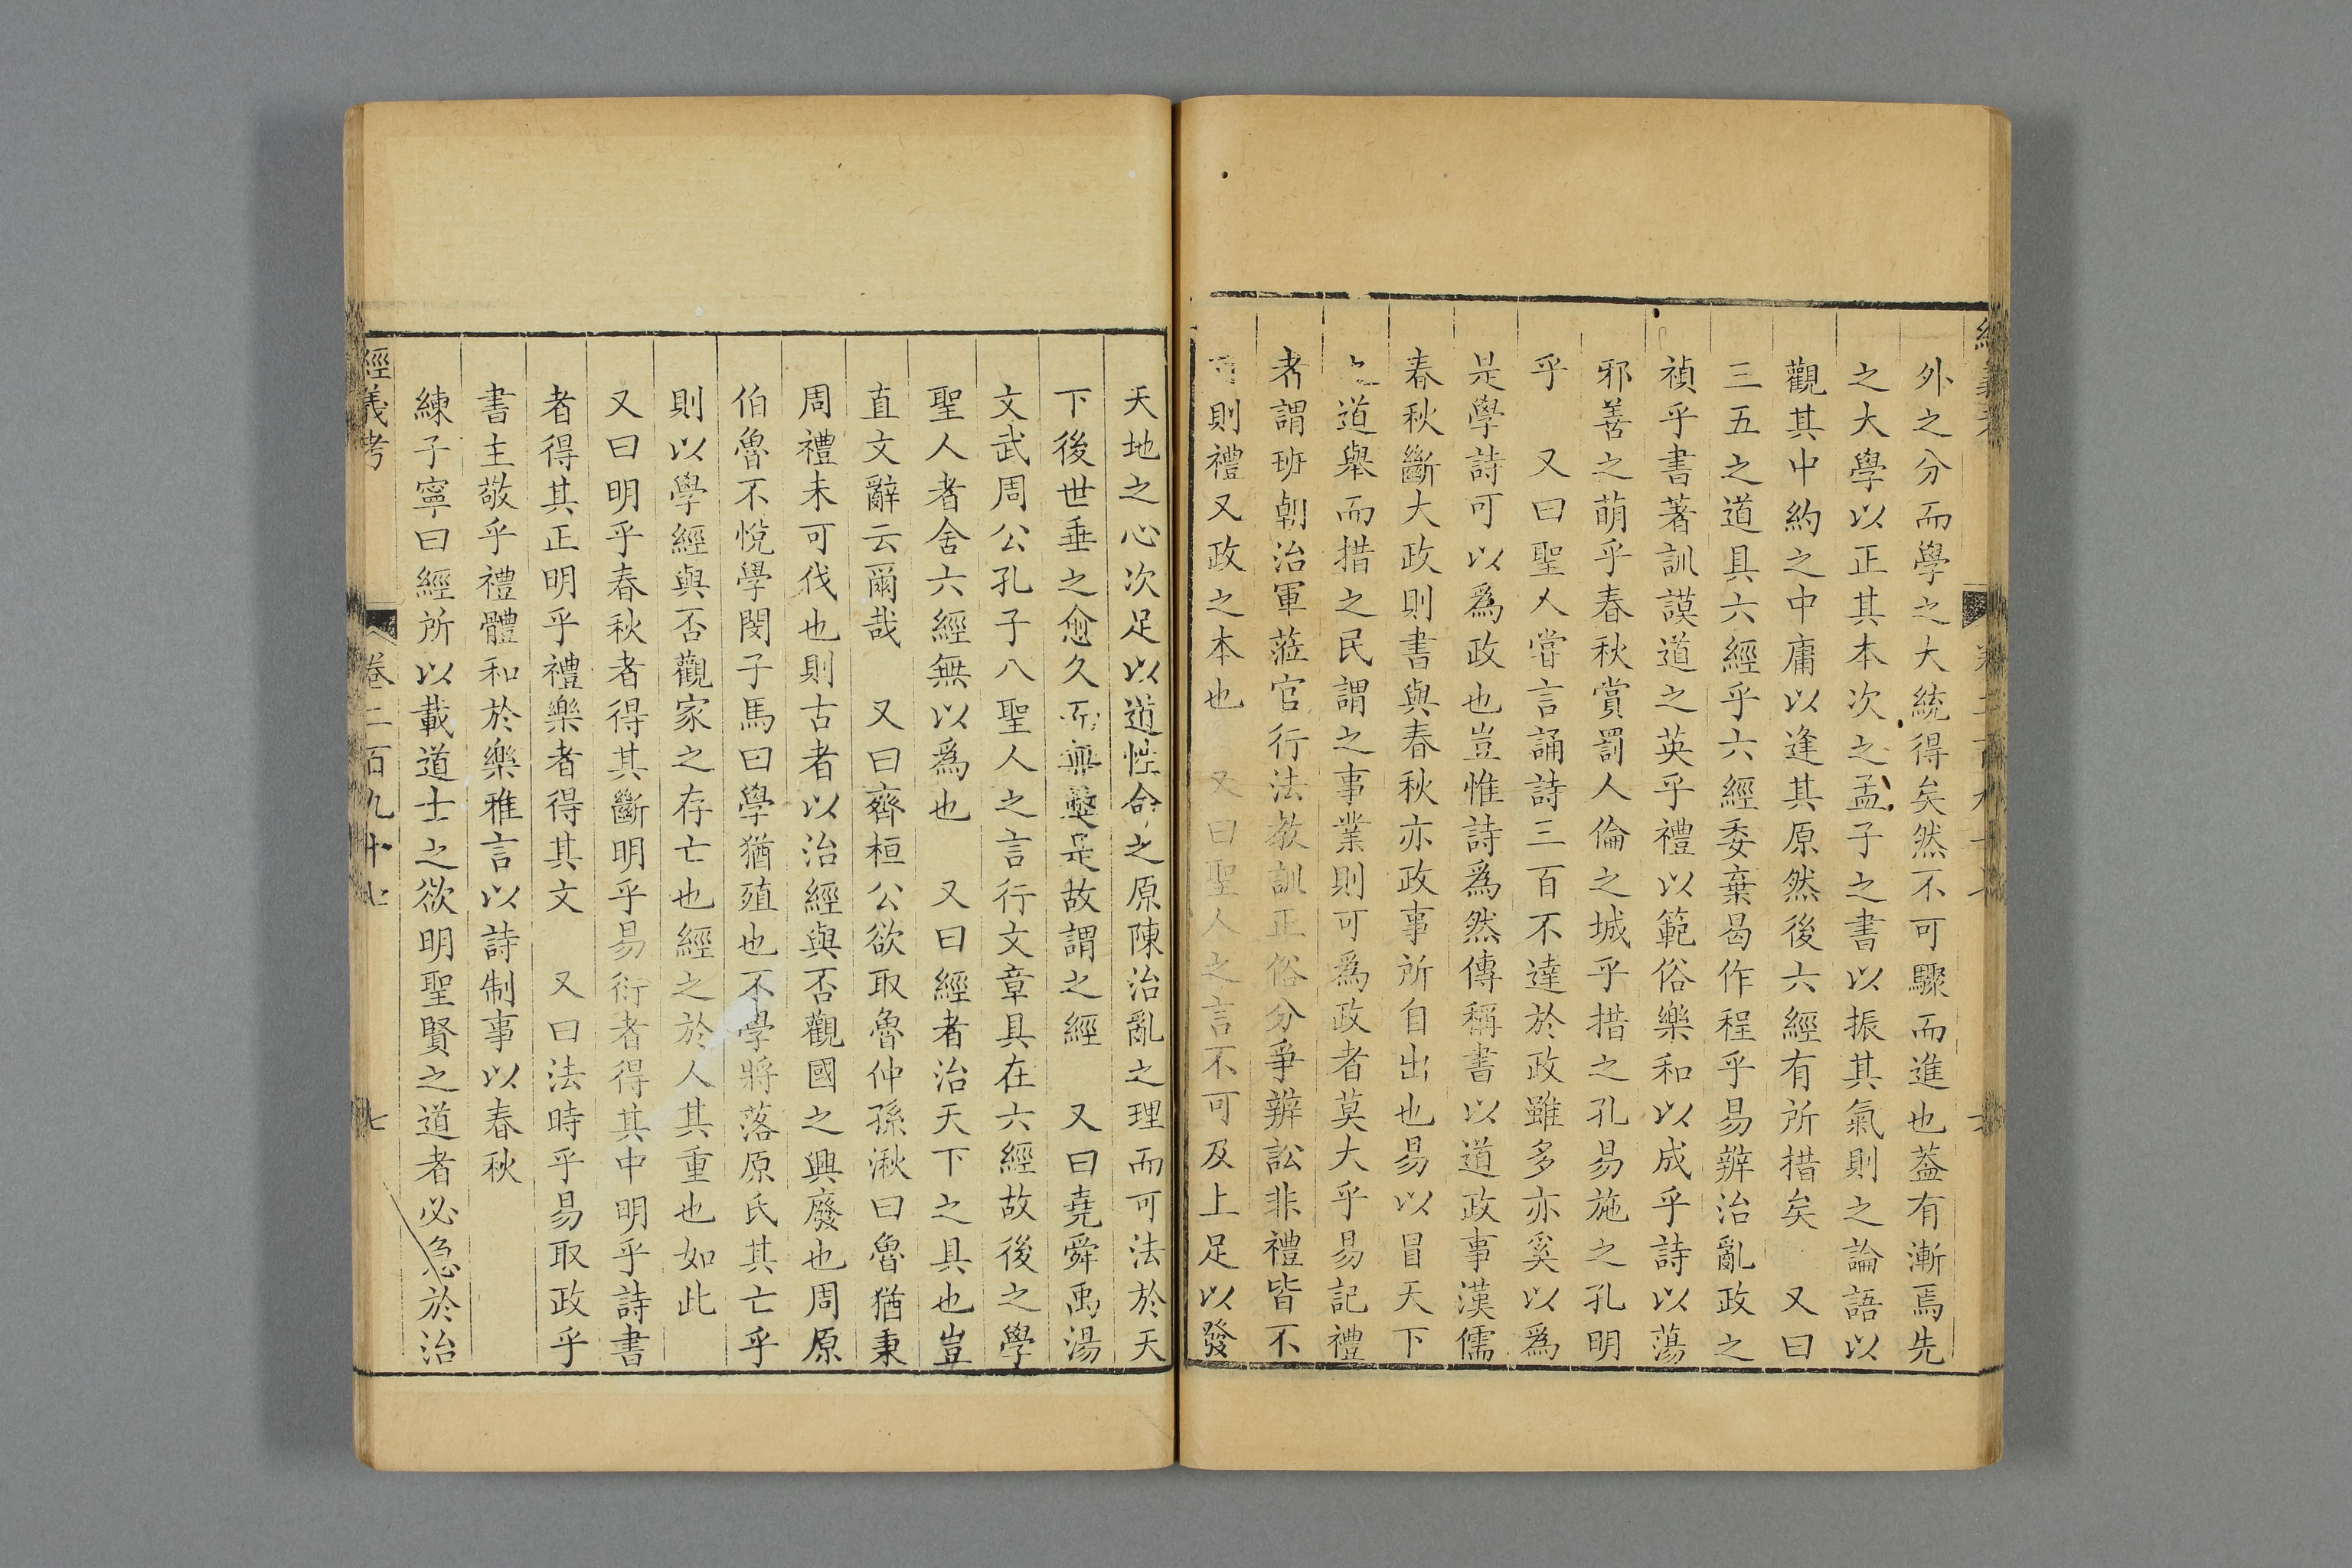 外之分而學之大統得矣然不可驟而進也葢有漸焉先
之大學以正其本次之孟子之書以振其氣則之論語以
觀其中約之中庸以逢其原然後六經有所措矣　又曰
三五之道具六經乎六經委棄曷作程乎易辨治亂政之
禎乎書著訓謨道之英乎禮以範俗樂和以成乎詩以蕩
邪善之萌乎春秋賞罰人倫之城乎措之孔易施之孔明
乎　又曰聖人嘗言誦詩三百不達於政雖多亦奚以爲
是學詩可以爲政也豈惟詩爲然傳稱書以道政事漢儒
春秋斷大政則書與春秋亦政事所自出也易以冒天下
之道舉而措之民謂之事業則可爲政者莫大乎易記禮
者謂班朝治軍蒞官行法教訓正俗分爭辨訟非禮皆不
則禮又政之本也　又曰聖人之言不可及上足以發
天地之心次足以道性命之原陳治亂之理而可法於天
下後世垂之愈久而無弊是故謂之經　又曰堯舜禹湯
文武周公孔子八聖人之言行文章具在六經故後之學
聖人者舍六經無以爲也　又曰經者治天下之具也豈
直文辭云爾哉　又曰齊桓公欲取魯仲孫湫曰魯猶秉
周禮未可伐也則古者以治經與否觀國之興廢也周原
伯魯不悅學閔子馬曰學猶殖也不學將落原氏其亡乎
則以學經與否觀家之存亡也經之於人其重也如此
又曰明乎春秋者得其斷明乎易衍者得其中明乎詩書
者得其正明乎禮樂者得其文　又曰法時乎易取政乎
書主敬乎禮體和於樂雅言以詩制事以春秋
練子寧曰經所以載道士之欲明聖賢之道者必急於治
經義考　卷二百九十七　七